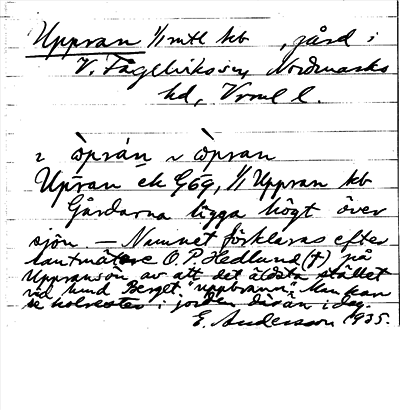 Uppran 1/1 mtl kb , gård i
V. Fågelviks sn, Nordmarks
hd, Vrml l.
2 òprán ~ òpran
Upran ek G69, 1/1 Uppran kb
Gårdarna ligga högt över
sjön. — Namnet förklaras efter
lantmätare O. P. Hedlund (†) på
Uppransön av att det äldsta stället
vid Berget "uppbrann". Man kan
se kolrester i jorden där än i dag.
E. Andersson 1935.